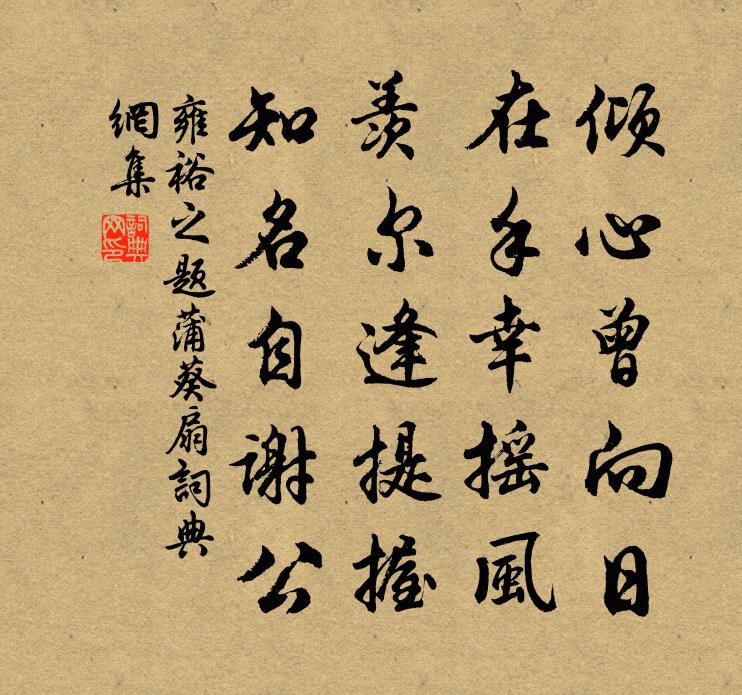 傾心曾向日
在手幸摇風
羨尔逢提握
知名自谢公
雍裕之题蒲葵扇詞典
網集
詞典网印